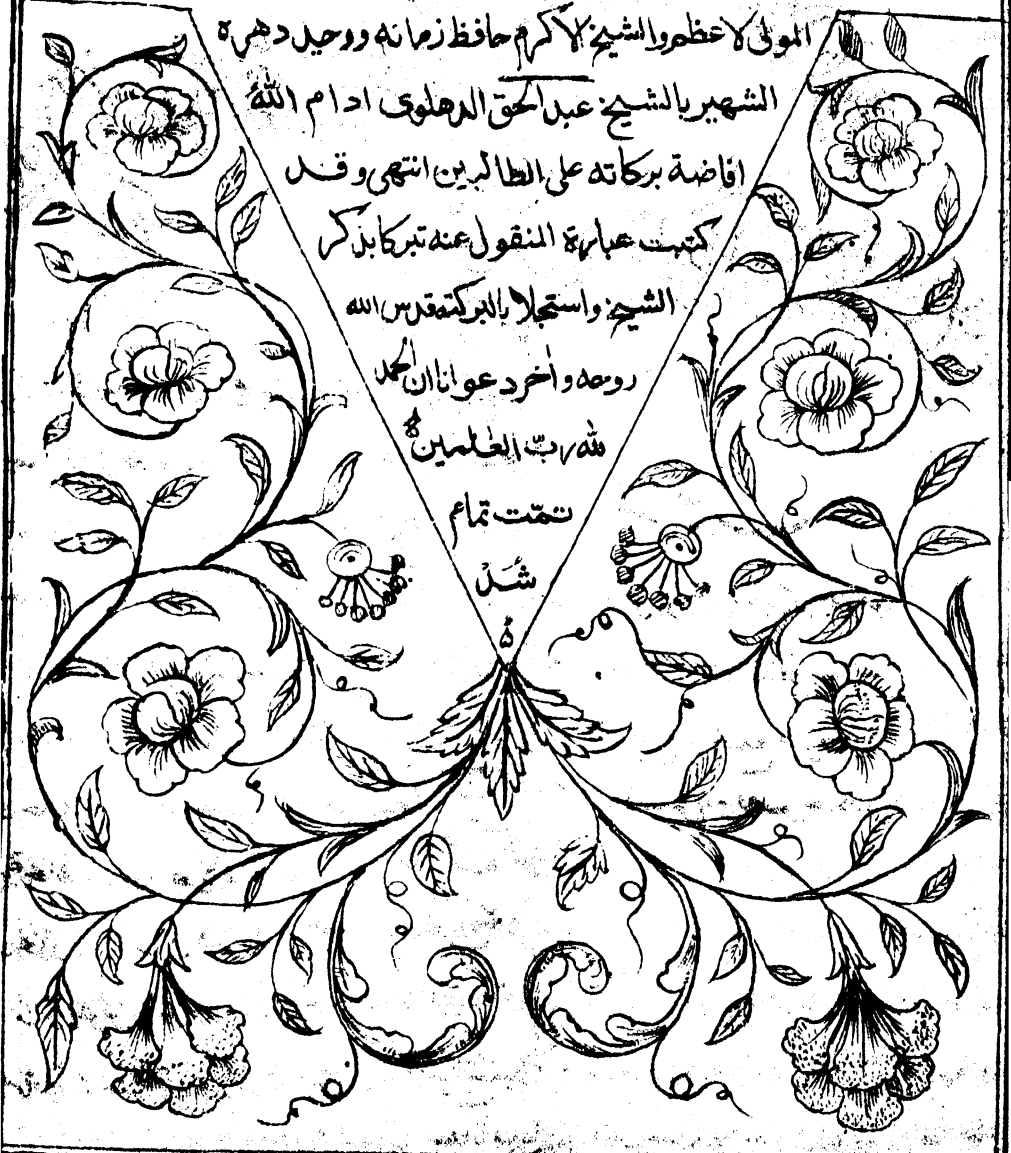 المولى لاعظم والشيخ لاكرم حافظ زمانه ووحيد دهره
الشهير بالشيخ عبد الحق الدهلوى ادام الله
افاضة بركاته على الطالبين انتهى وقد
كتبت عبارة المنقول عنه تبركا بذكر
الشيخ واستجلابا لبركته قدس الله
روحه وأخر دعوانا ان الحمد
لله ربّ العٰلمين
تمّت تمام
شُدْ